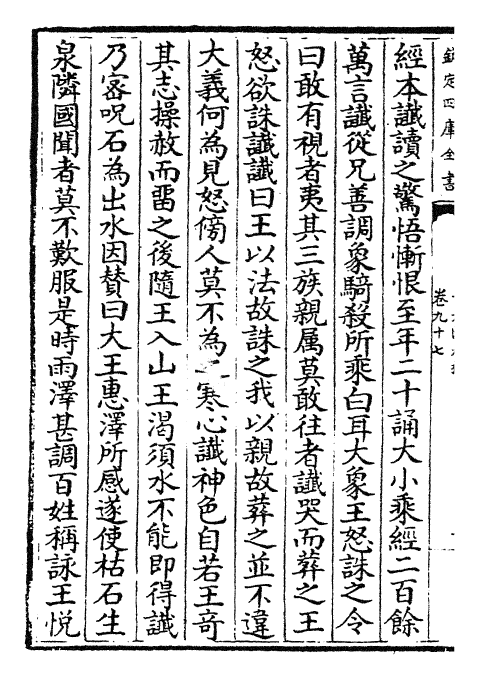 欽定四庫全書
卷九十七
經本讖讀之驚悟慚恨至年二十誦大小乘經二百餘
萬言讖從兄善調象騎殺所乘白耳大象王怒誅之令
曰敢有視者夷其三族親属莫敢往者讖哭而葬之王
怒欲誅讖讖曰王以法故誅之我以親故葬之並不違
大義何為見怒傍人莫不為之寒心讖神色自若王奇
其志操赦而畱之後隨王入山王渇須水不能即得讖
乃宻呪石為出水因賛曰大王惠澤所感遂使枯石生
泉隣國聞者莫不歎服是時雨澤甚調百姓稱詠王悦